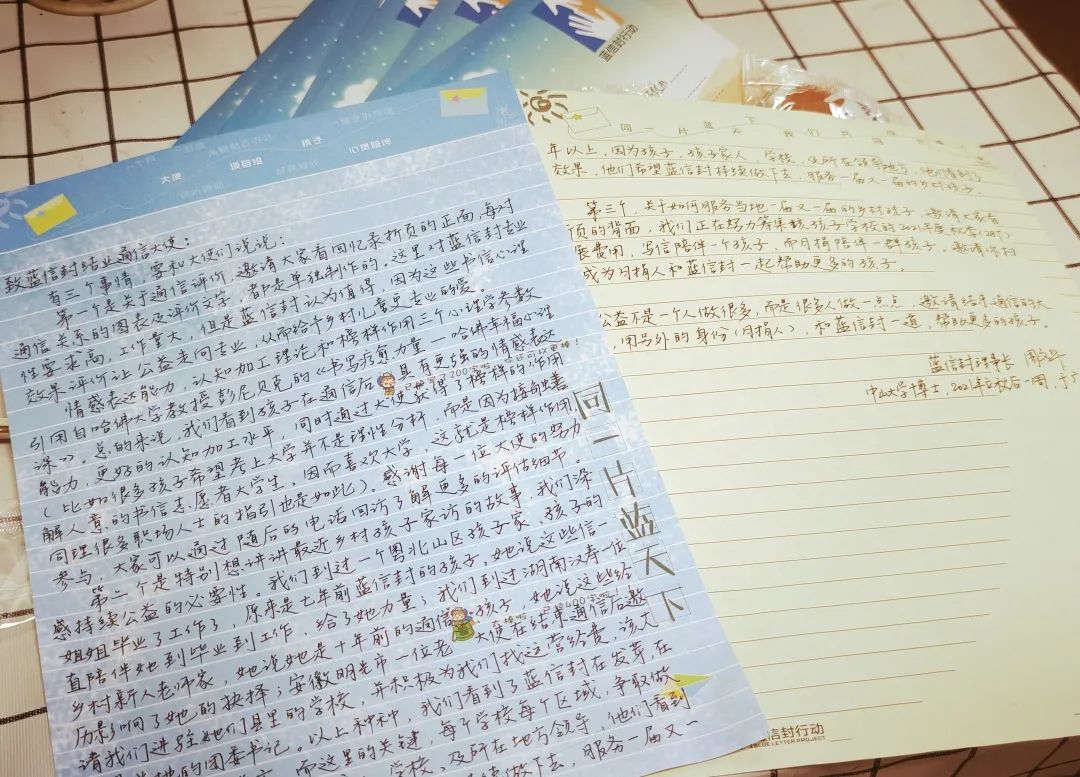 蓝信封行动
致蓝信封结业通信大使：
有三个事情，要和大使们说说：
第一个是关于通信评价，邀请大家看回忆录折页的正面，每对
通信关系的图表及评价文字，都是单独制作的，这里对蓝信封专业
性要求高，工作量大，但是蓝信封认为值得，因为这些书信心理
效果评价让公益走向专业，从而给予乡村儿童更专业的爱。
情感表达能力，认知加工理论和榜样作用三个心理学参数
引用自哈佛大学教授彭尼贝克的《书写疗愈力量—哈佛幸福心理
课》，总的来说，我们看到孩子在通信后具有更强的情感表达
能力，更好的认知加工水平，同时通过大使获得了榜样的作用
（比如很多孩子希望考上大学并不是理性分析，而是因为接触善
解人意的书信志愿者大学生，因而喜欢大学，这就是榜样作用，
同理很多职场人士的指引也是如此）。感谢每一位大使的努力
参与，大家可以通过随后的电话回访了解更多的评估细节。
第二个是特别想讲讲最近乡村孩子家访的故事，我们深
感持续公益的必要性。我们到过一个粤北山区孩子家，孩子的
姐姐毕业了工作了，原来是七年前蓝信封的孩子，她说这些信一
直陪伴她到毕业到工作，给了她力量；我们到过湖南汉寿一位
乡村新人老师家，她说她是十年前的通信孩子，她说这些经
历影响了她的抉择；安徽明光市一位老大使在结束通信后邀
请我们进驻她们县里的学校，并积极为我们找运营经费，该大
的团委书记。以上种种，我们看到了蓝信封在发芽，在
而这里的关键，每个学校每个区域，争取做
学校，及所在地方领导，他们看到
续做下去，服务一届又一
同一片蓝天下
同一片蓝天下 我们共同
年以上，因为孩子、孩子家人、学校，及所在领导地方，他们看到了
效果，他们希望蓝信封持续做下去，服务一届又一届的乡村孩子。
第三个，关于如何服务当地一届又一届的乡村孩子，邀请大家看
页的背面，我们正在努力筹集该孩子学校的2021年度
费用，写信陪伴一个孩子，而月捐陪伴一群孩子。邀请你扫
成为月捐人和蓝信封一起帮助更多的孩子。
公益不是一个人做很多，而是很多人做一点点，邀请结束通信的大
，用另外的身份（月捐人），和蓝信封一道，帮助更多的孩子。
蓝信封理事长 周文华
中山大学博士，2021年立秋后一周，于广
信封行动
BLUE LETTER PROJECT